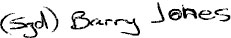 (Sgd) Barry Jones